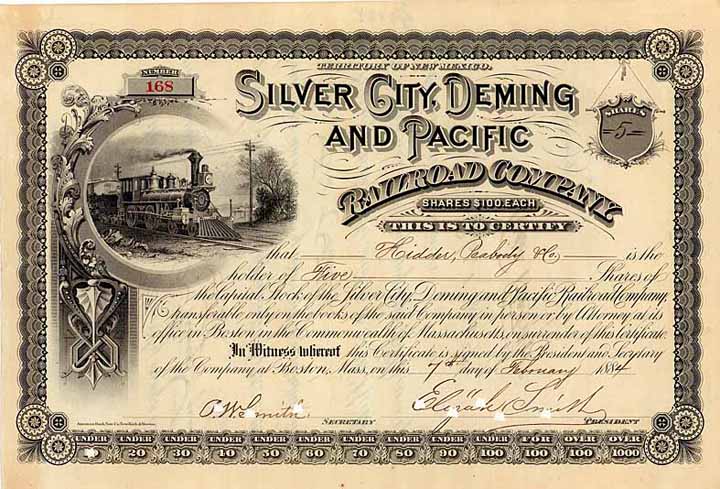 TERRITORY OF NEW MEXICO.
NUMBER
168
SILVER CITY, DEMING
AND PACIFIC
RAILROAD COMPANY
SHARES
5
SHARES $100 EACH
THIS IS TO CERTIFY
that Kidder, Peabody & Co. is the
holder of Five Shares of
the Capital Stock of the Silver City, Deming and Pacific Railroad Company,
transferable only on the books of the said Company in person or by Attorney at its
office in Boston in the Commonwealth of Massachusetts, on surrender of this Certificate.
In Witness whereof this Certificate is signed by the President and Secretary
of the Company at Boston, Mass, on this 7th day of February 1884
Smith Elijah Smith
SECRETARY PRESIDENT
American Bank Note Co. New York & Boston.
UNDER UNDER UNDER UNDER UNDER UNDER UNDER UNDER UNDER UNDER FOR OVER OVER
20 30 40 50 60 70 80 90 100 100 100 1000